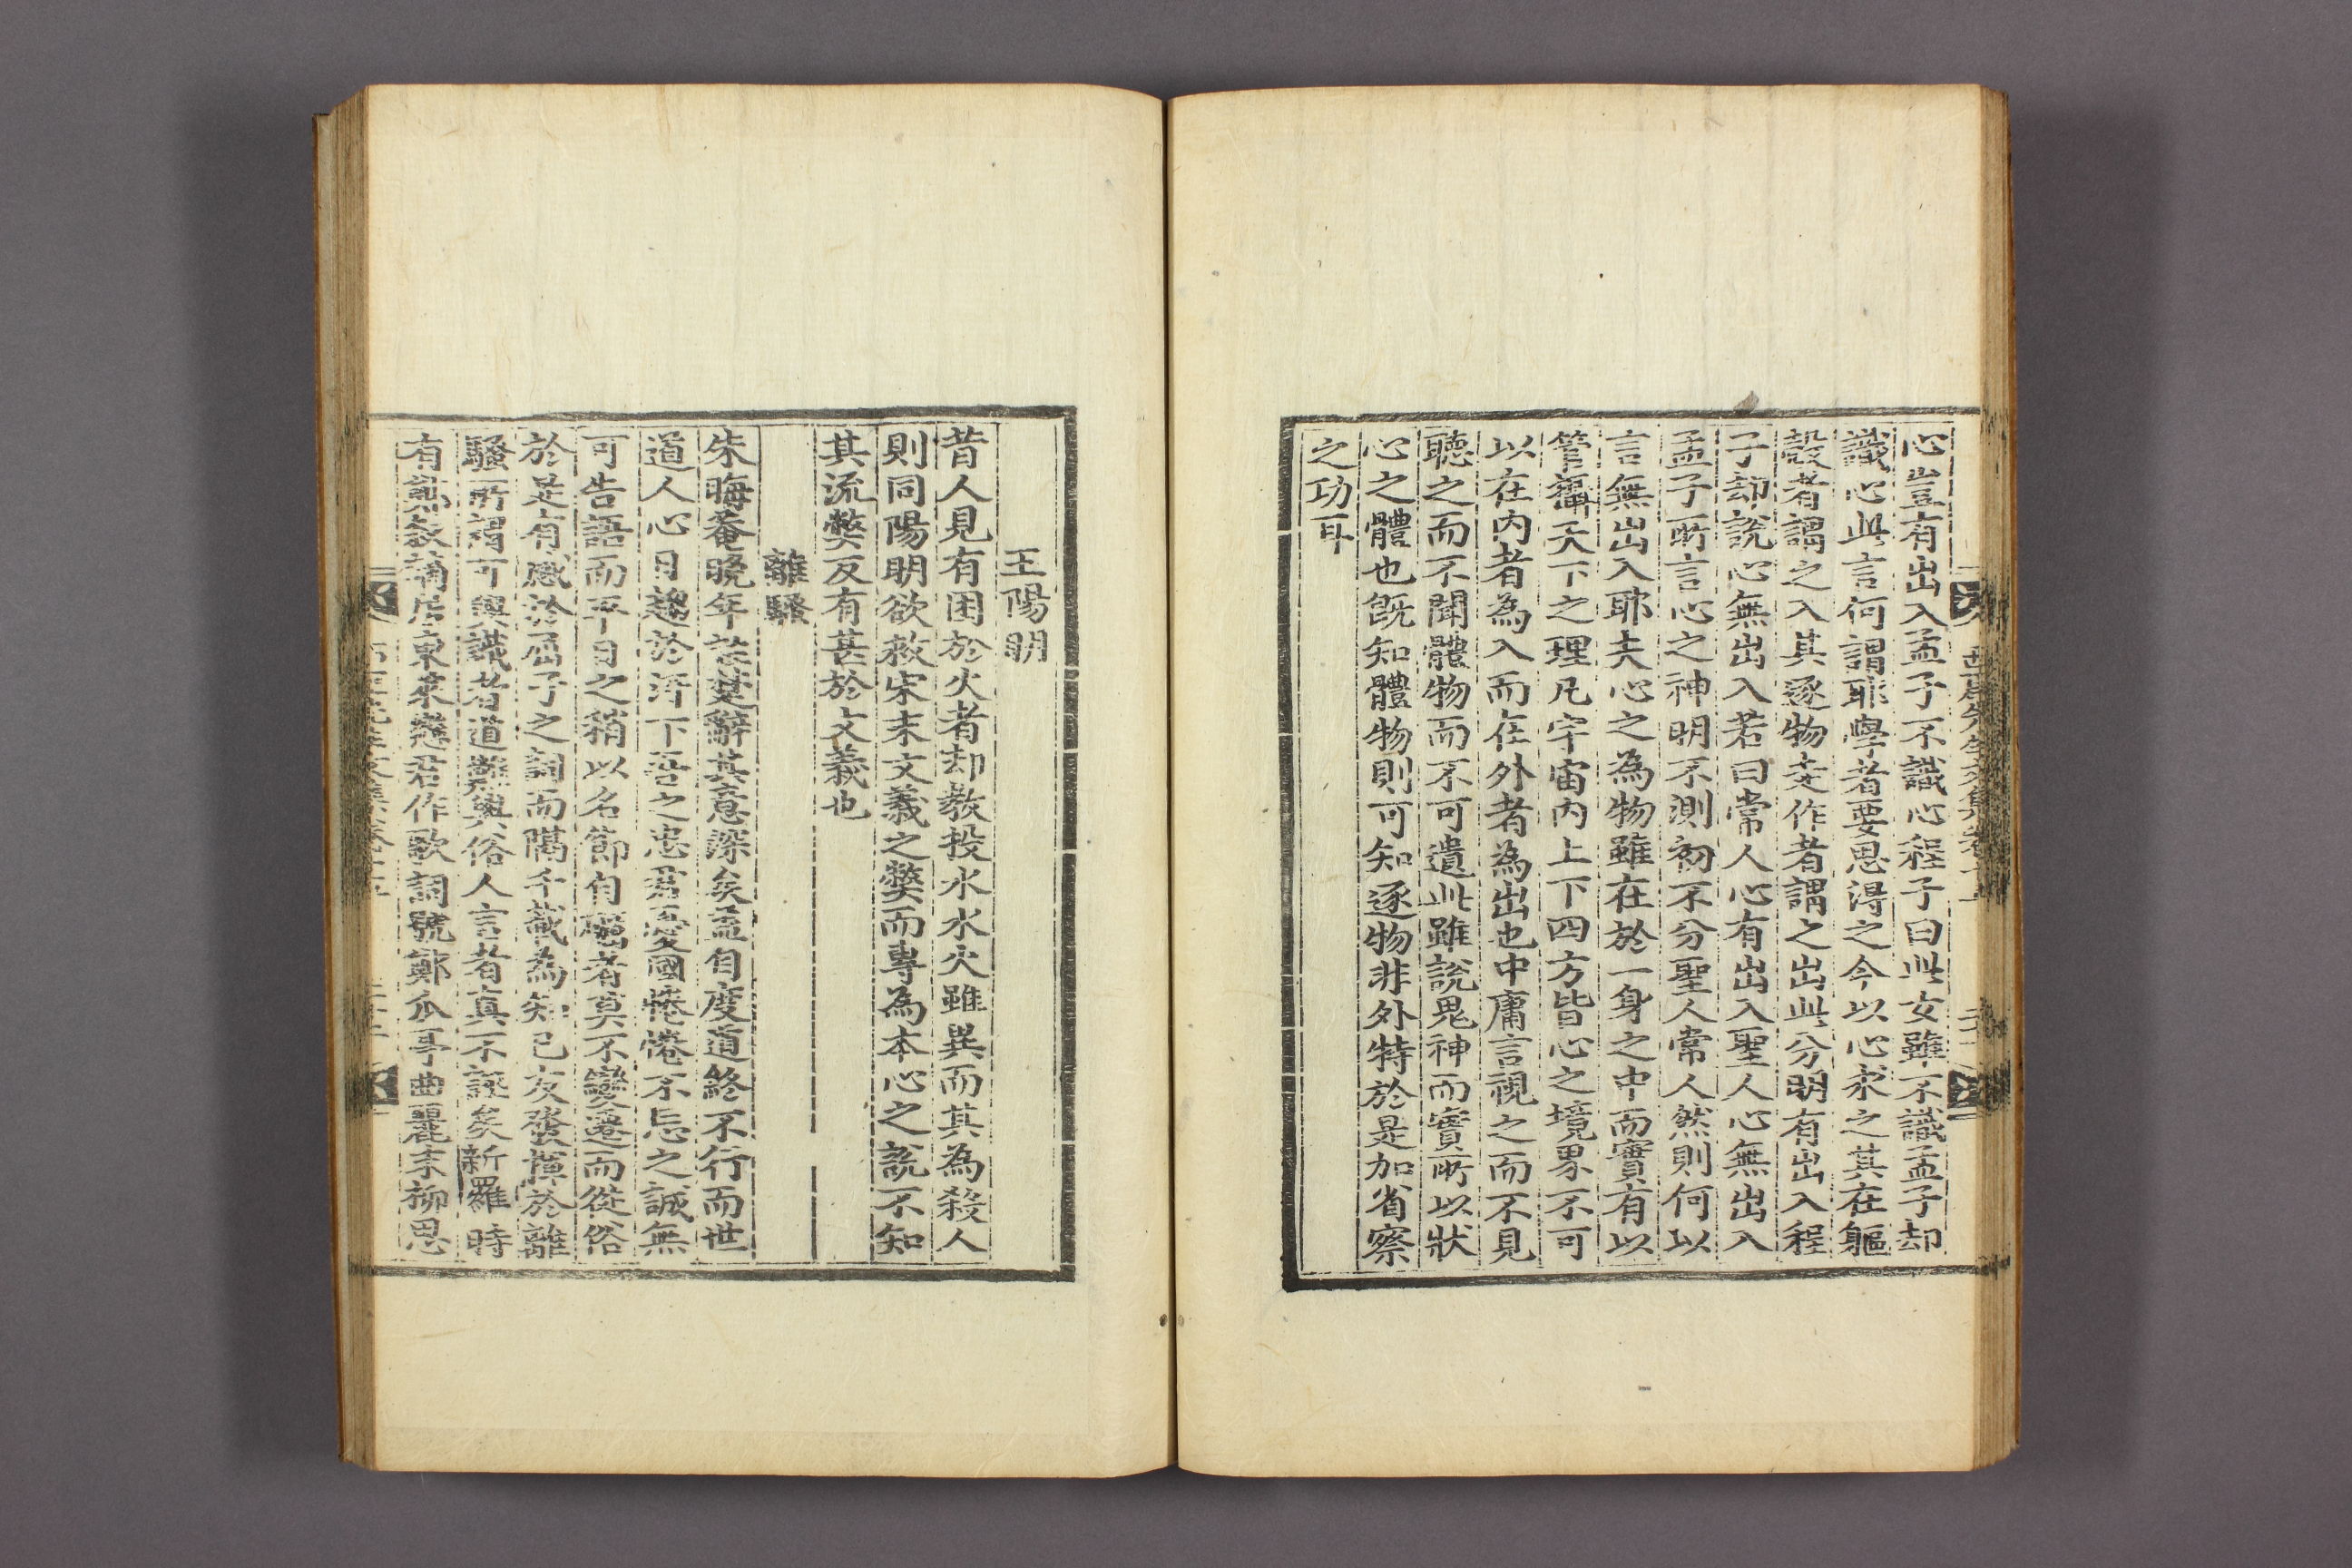 心豈有出入孟子不識心程子曰此女雖不識孟子却
識心此言何謂耶學者要思得之今以心求之其在軀
殼者謂之入其逐物走作者謂之出此分明有出入程
子却說心無出入若曰常人心有出入聖人心無出入
孟子所言心之神明不測初不分聖人常人然則何以
言無出入耶夫心之為物雖在於一身之中而實有以
管攝天下之理凡宇宙內上下四方皆心之境界不可
以在內者為入而在外者為出也中庸言視之而不見
聽之而不聞體物而不可遺此雖說鬼神而實所以狀
心之體也旣知體物則可知逐物非外特於是加省察
之功耳
王陽明
昔人見有困於火者却教投水水火雖異而其為殺人
則同陽明欲救宋末文義之弊而專為本心之說不知
其流弊反有甚於文義也
離騷
朱晦菴晩年註楚辭其意深矣盖自度道終不行而世
道人心日趨於汚下吾之忠君憂國惓惓不忘之誠無
可告語而平日之稍以名節自礪者莫不變遷而從俗
於是有感於屈子之詞而隔千載為知己友發揮於離
騷所謂可與識者道難與俗人言者眞不誣矣新羅時
有鄭敍謫居東萊戀君作歌詞號鄭瓜亭曲麗末柳思